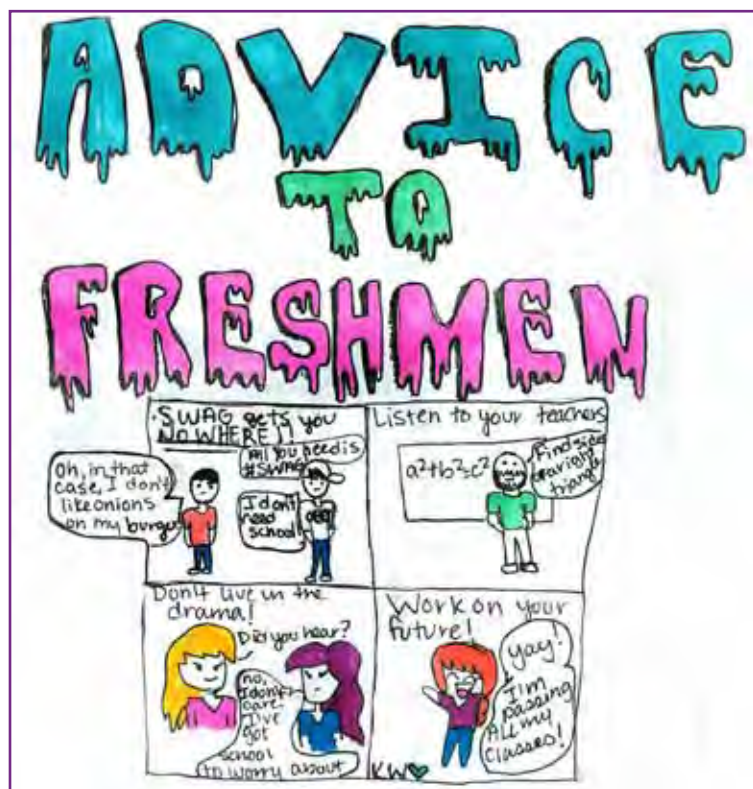 ADVICE
TO
FRESHMEN
SWAG gets you
NOWHERE!!
All you need is
#SWAG
Oh, in that
case, I don't
like onions
on my burger
I don't
need
school!
Listen to your teachers
a²+b²=c²
Find side
of a right
triangle
Don't live in the
drama!
Did you hear?
no,
I don't
care.
I've
got
school
to worry about
Work on your
future!
yay!
I'm
passing
ALL my
classes!
KW